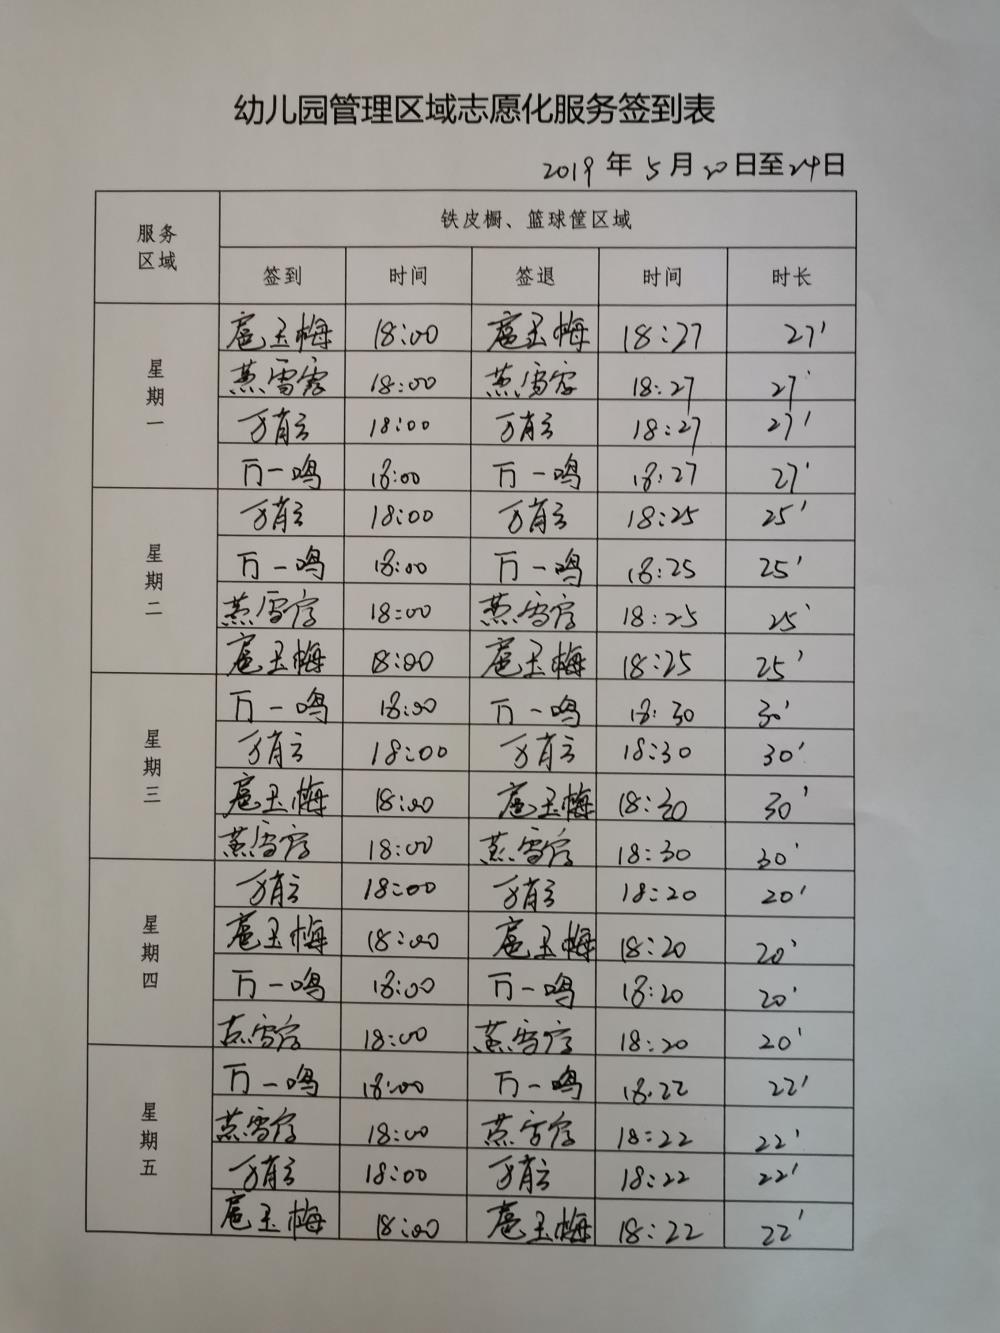 幼儿园管理区域志愿化服务签到表
2019 年 5 月 20 日至 24 日
服务区域 铁皮橱、篮球筐区域
签到 时间 签退 时间 时长
星期一
扈玉梅 18:00 扈玉梅 18:27 27'
燕雪 18:00 燕雪 18:27 27'
万 18:00 万 18:27 27'
万一鸣 18:00 万一鸣 18:27 27'
星期二
万 18:00 万 18:25 25'
万一鸣 18:00 万一鸣 18:25 25'
燕雪 18:00 燕雪 18:25 25'
扈玉梅 18:00 扈玉梅 18:25 25'
星期三
万一鸣 18:00 万一鸣 18:30 30'
万 18:00 万 18:30 30'
扈玉梅 18:00 扈玉梅 18:30 30'
燕雪 18:00 燕雪 18:30 30'
星期四
万 18:00 万 18:20 20'
扈玉梅 18:00 扈玉梅 18:20 20'
万一鸣 18:00 万一鸣 18:20 20'
雪 18:00 燕雪 18:20 20'
星期五
万一鸣 18:00 万一鸣 18:22 22'
燕雪 18:00 燕 18:22 22'
万 18:00 万 18:22 22'
扈玉梅 18:00 扈玉梅 18:22 22'